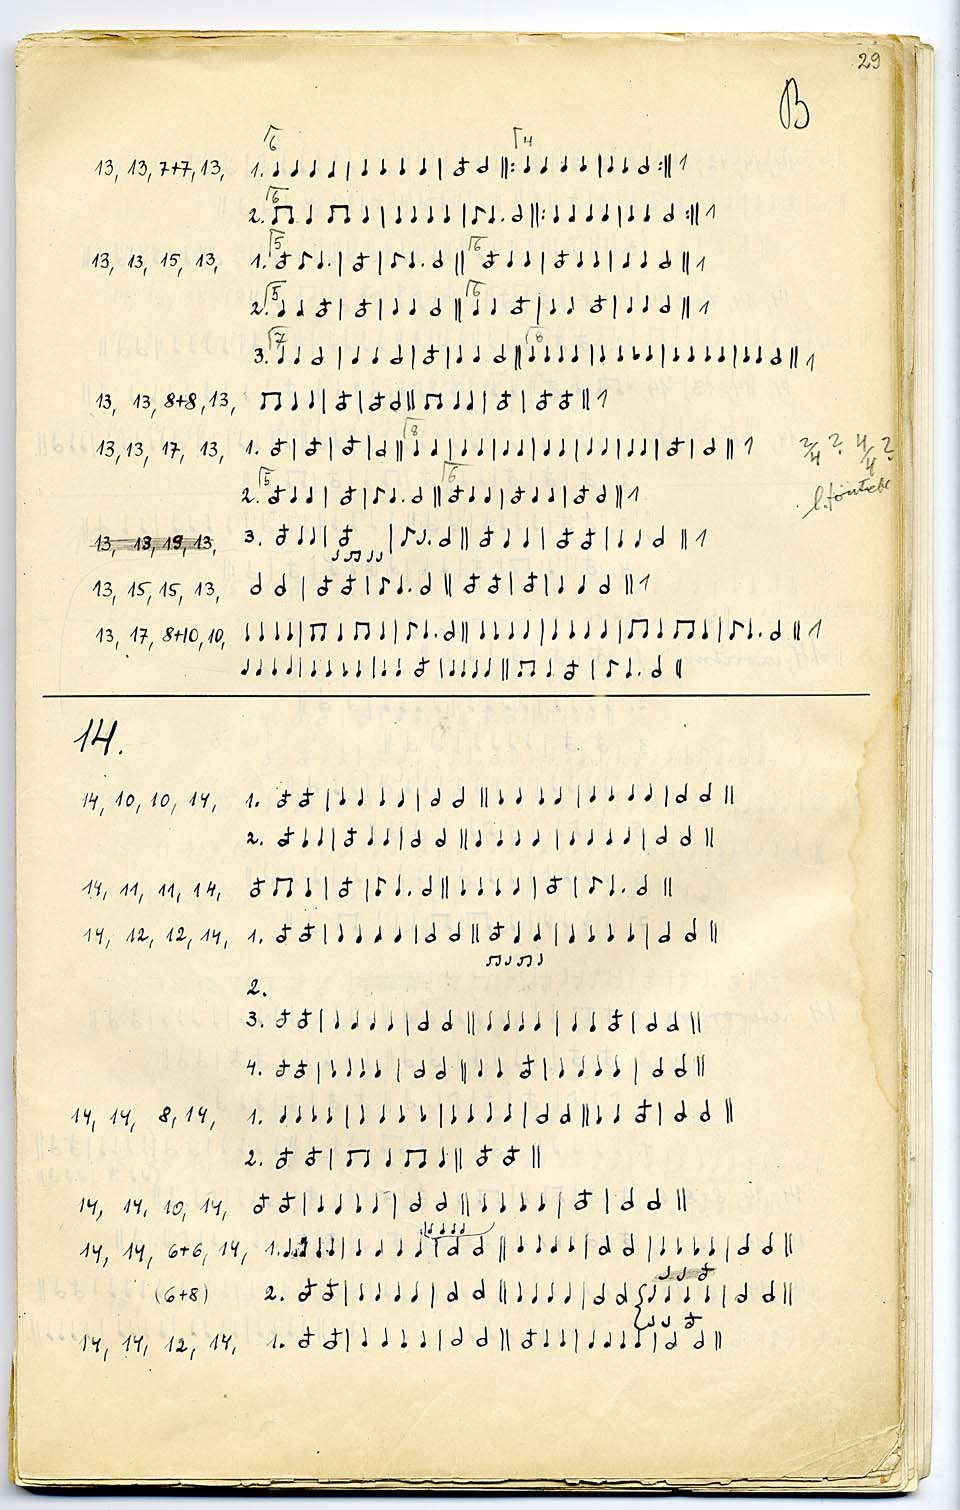 29
B
6 4
13, 13, 7+7, 13, 1. 1
6
2. 1
5 6
13, 13, 15, 13, 1. 1
5 6
2. 1
7 8
3. 1
13, 13, 8+8, 13, 1
8
13, 13, 17, 13, 1. 1 2/4 ? 4/4 ?
5 6
2. 1
13, 13, 19, 13, 3. 1
13, 15, 15, 13, 1
13, 17, 8+10, 10, 1
14.
14, 10, 10, 14, 1.
2.
14, 11, 11, 14,
14, 12, 12, 14, 1.
2.
3.
4.
14, 14, 8, 14, 1.
2.
14, 14, 10, 14,
14, 14, 6+6, 14, 1.
(6+8) 2.
14, 14, 12, 14, 1.